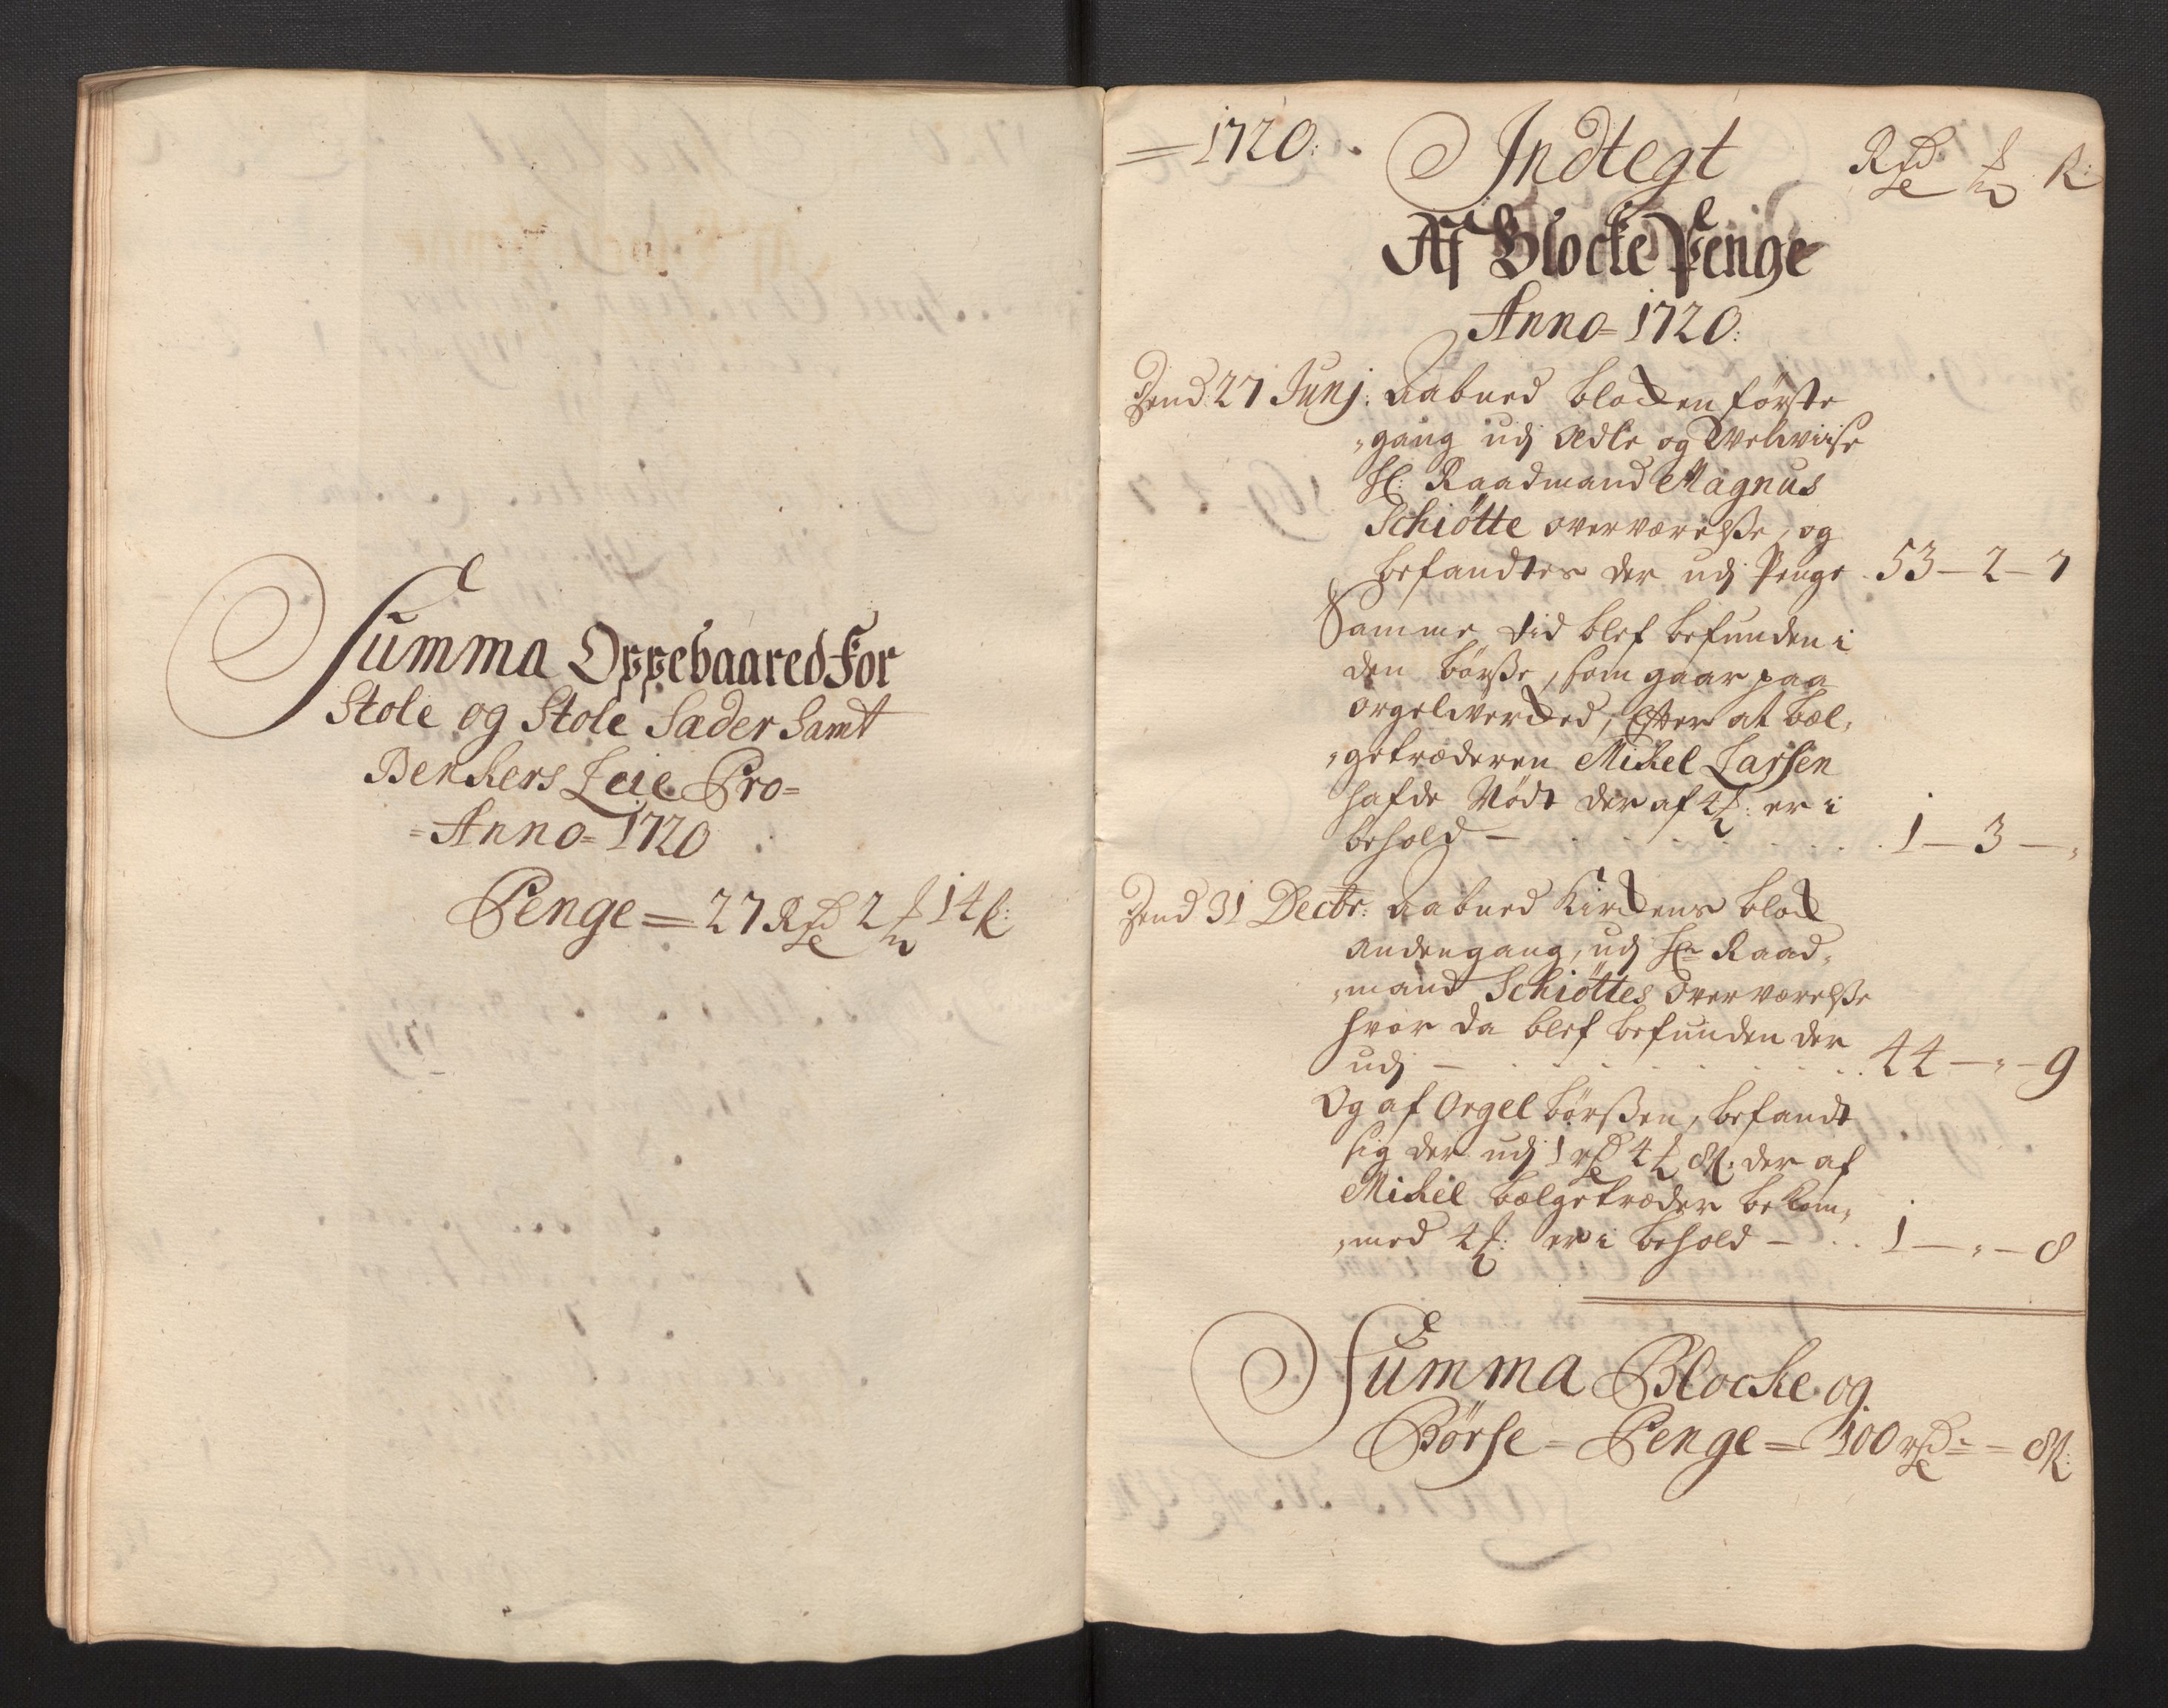 Summa Oppebaared For
Stole og Stole Sæder Samt
Benkers Leie Pro=
=Anno=1720
Penge = 27 Rdr 2 ℳ 14 ß:
=1720: Indtegt Rdr ℳ ß:
Af Blocke Penge
Anno=1720:
Dend 27 Junj: aabned blocken første
gang udj Ædle og Velwiise
H: Raadmand Magnus
Schiötte overværelße, og
befandtes der udj Penge 53—2—7
Samme tid blef befunden i
den börße, som gaar paa
orgelwercked, Efter at bæl,
,getræderen Mikel Larsen
hafde Nödt der af 4 ℳ: er i
behold — . . . . . . . 1—3—,
Dend 31 Decbr: aabned Kirckens block
anden gang, udj Hr Raad,
,mand Schiöttes overværelße
hvor da blef befunden der
udj — . . . . . . . 44—,—9
Og af Orgel börßen, befandt
sig der udj 1 rdr 4 ℳ 8 ß: der af
Mikel bælgetræder bekom,
,med 4 ℳ: er i behold — . . 1—,—8
Summa Blocke og
Börse = Penge = 100 rdr - = 8 ß: